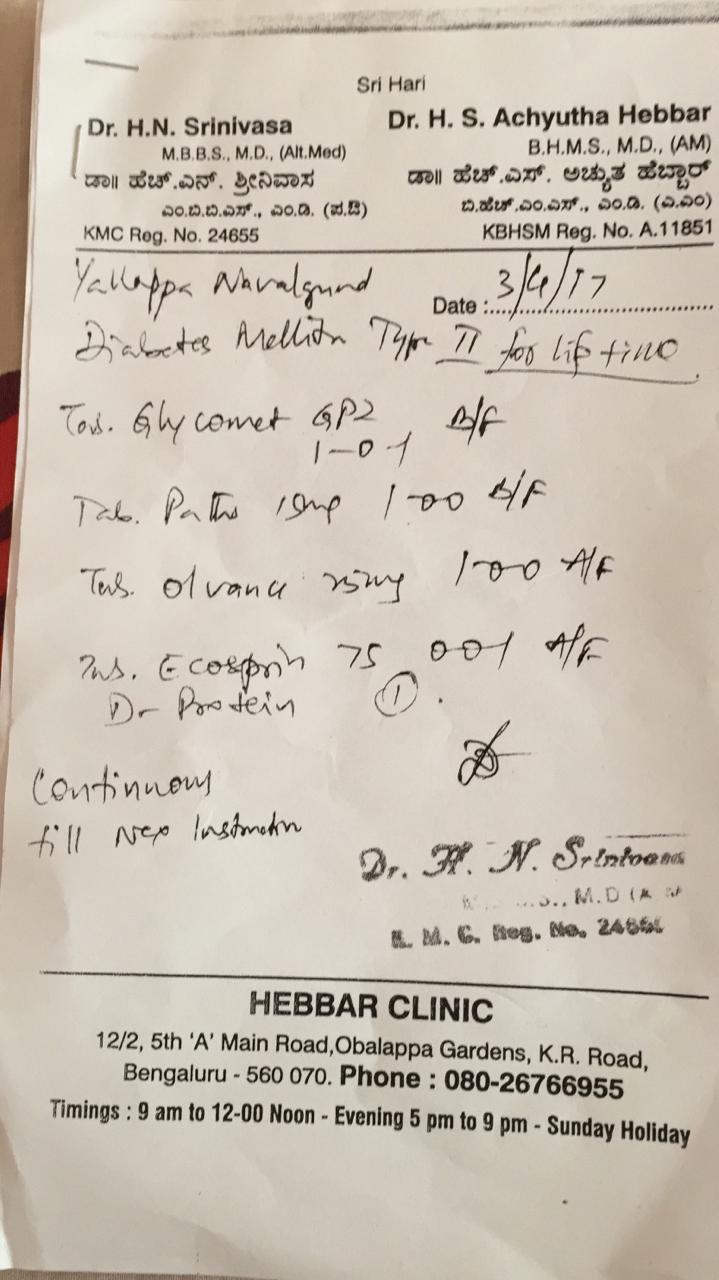 Sri Hari
Dr. H.N. Srinivasa
M.B.B.S., M.D., (Alt.Med)
ಡಾ|| ಹೆಚ್.ಎನ್. ಶ್ರೀನಿವಾಸ
ಎಂ.ಬಿ.ಬಿ.ಎಸ್., ಎಂ.ಡಿ. (ಪ.ಔ)
KMC Reg. No. 24655
Dr. H. S. Achyutha Hebbar
B.H.M.S., M.D., (AM)
ಡಾ|| ಹೆಚ್.ಎಸ್. ಅಚ್ಯುತ ಹೆಬ್ಬಾರ್
ಬಿ.ಹೆಚ್.ಎಂ.ಎಸ್., ಎಂ.ಡಿ. (ಎ.ಎಂ)
KBHSM Reg. No. A.11851
Yallappa Navalgund
Date : 3/4/17
Diabetes Type II for life time
Tab. Glycomet GP2 B/F
1-0-1
Tab. 15mg 1-00 B/F
Tab. Olvance 25mg 1-00 A/F
Tab. Ecosprin 75 001 A/F
D- Protein 1
Continuous
till
Dr. H. N. Srinivasa
M.D
K. M. C. Reg. No.
HEBBAR CLINIC
12/2, 5th 'A' Main Road,Obalappa Gardens, K.R. Road,
Bengaluru - 560 070. Phone : 080-26766955
Timings : 9 am to 12-00 Noon - Evening 5 pm to 9 pm - Sunday Holiday